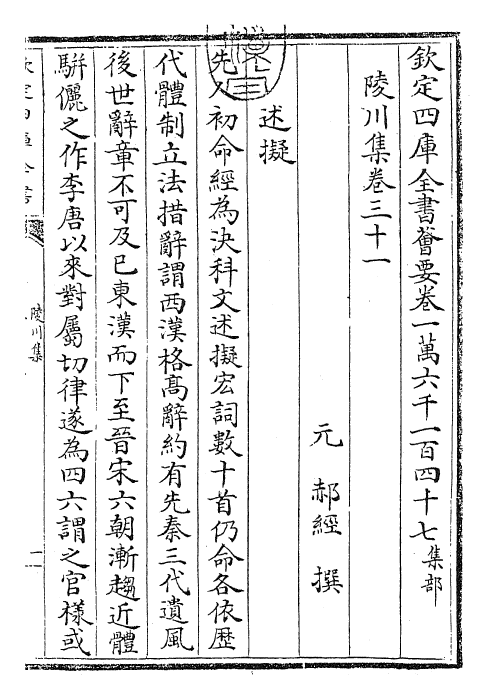 欽定四庫全書薈要卷一萬六千一百四十七集部
陵川集卷三十一
元 郝經 撰
述擬
先人初命經為決科文述擬宏詞數十首仍命各依歷
代體制立法措辭謂西漢格髙辭約有先秦三代遺風
後世辭章不可及已東漢而下至晉宋六朝漸趨近體
駢儷之作李唐以來對屬切律遂為四六謂之官様或
陵川集
一